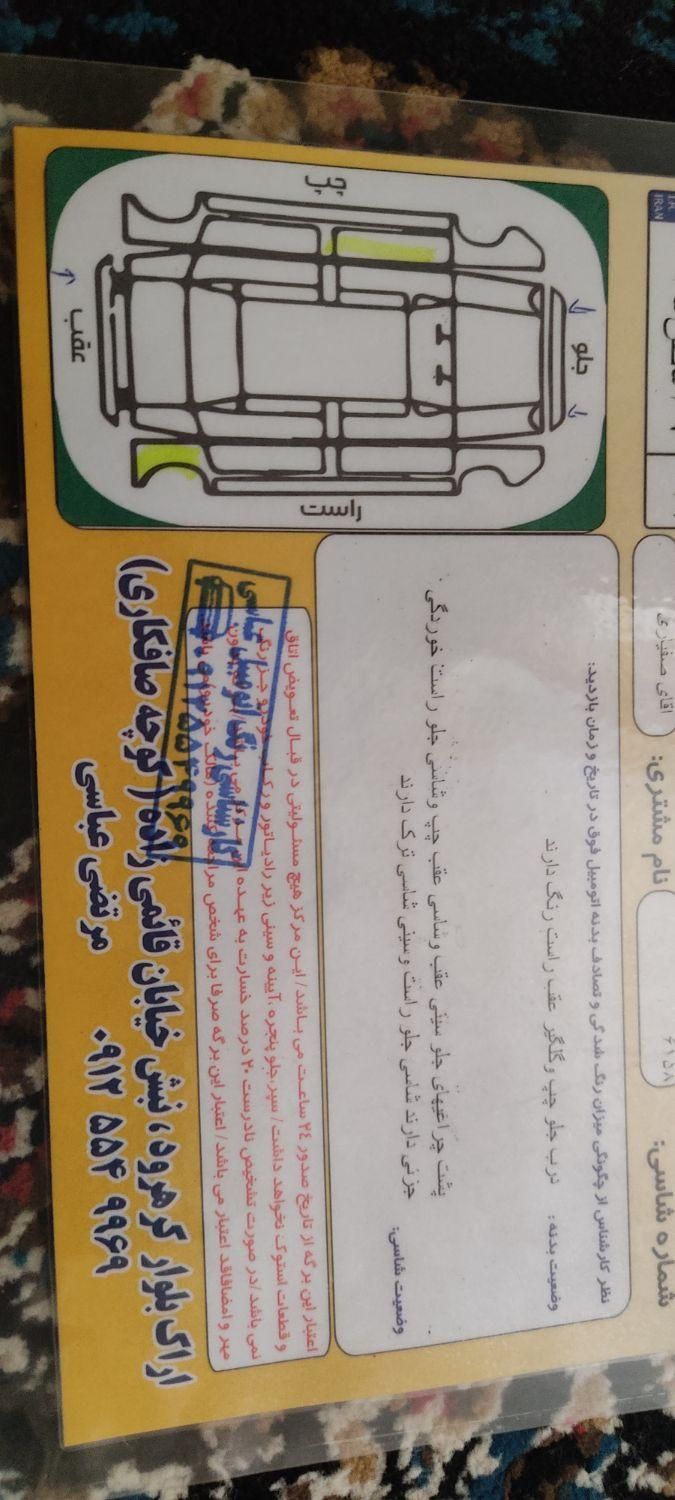 I.R.
IRAN
نام مشتری:
اقای صفیاری
شماره شاسی:
۶۱۵۸
چپ
جلو
عقب
راست
نظر کارشناس از چگونگی میزان رنگ شدگی و تصادف بدنه اتومبیل فوق در تاریخ و زمان بازدید:
وضعیت بدنه : درب جلو چپ و گلگیر عقب راست رنگ دارند
پشت چراغیهای جلو سینی عقب وشاسی عقب چپ وشاسی جلو راست خوردگی
وضعیت شاسی: جزئی دارند شاسی جلو راست و سینی شاسی ترک دارند
اعتبار این برگه از تاریخ صدور ۲۴ ساعت می باشد/ ایـن مرکز هیچ مسئـولیتی در قبـال تعـویض اتاق
و قطعات استوک نخواهد داشت/ سپر،جلو پنجره ،آیینه و سینی زیر رادیـاتـور و رکـاب خودرو جـز رنگ
نمی باشد /در صورت تشخیص نادرست ۲۰ درصد خسارت به عهـده
مهر و امضا فاقد اعتبار می باشد/ اعتبار این برگه صرفا برای شخص مراجعه کننده (مالک خودرو) می باشد
کارشناسی رنگ اتومبیل عباسی
۰۹۱۲ ۵۵۴ ۹۹۶۹
اراک بلوار گرهرود، نبش خیابان قائمی زاده ( کوچه صافکاری)
مرتضی عباسی
۰۹۱۲ ۵۵۴ ۹۹۶۹